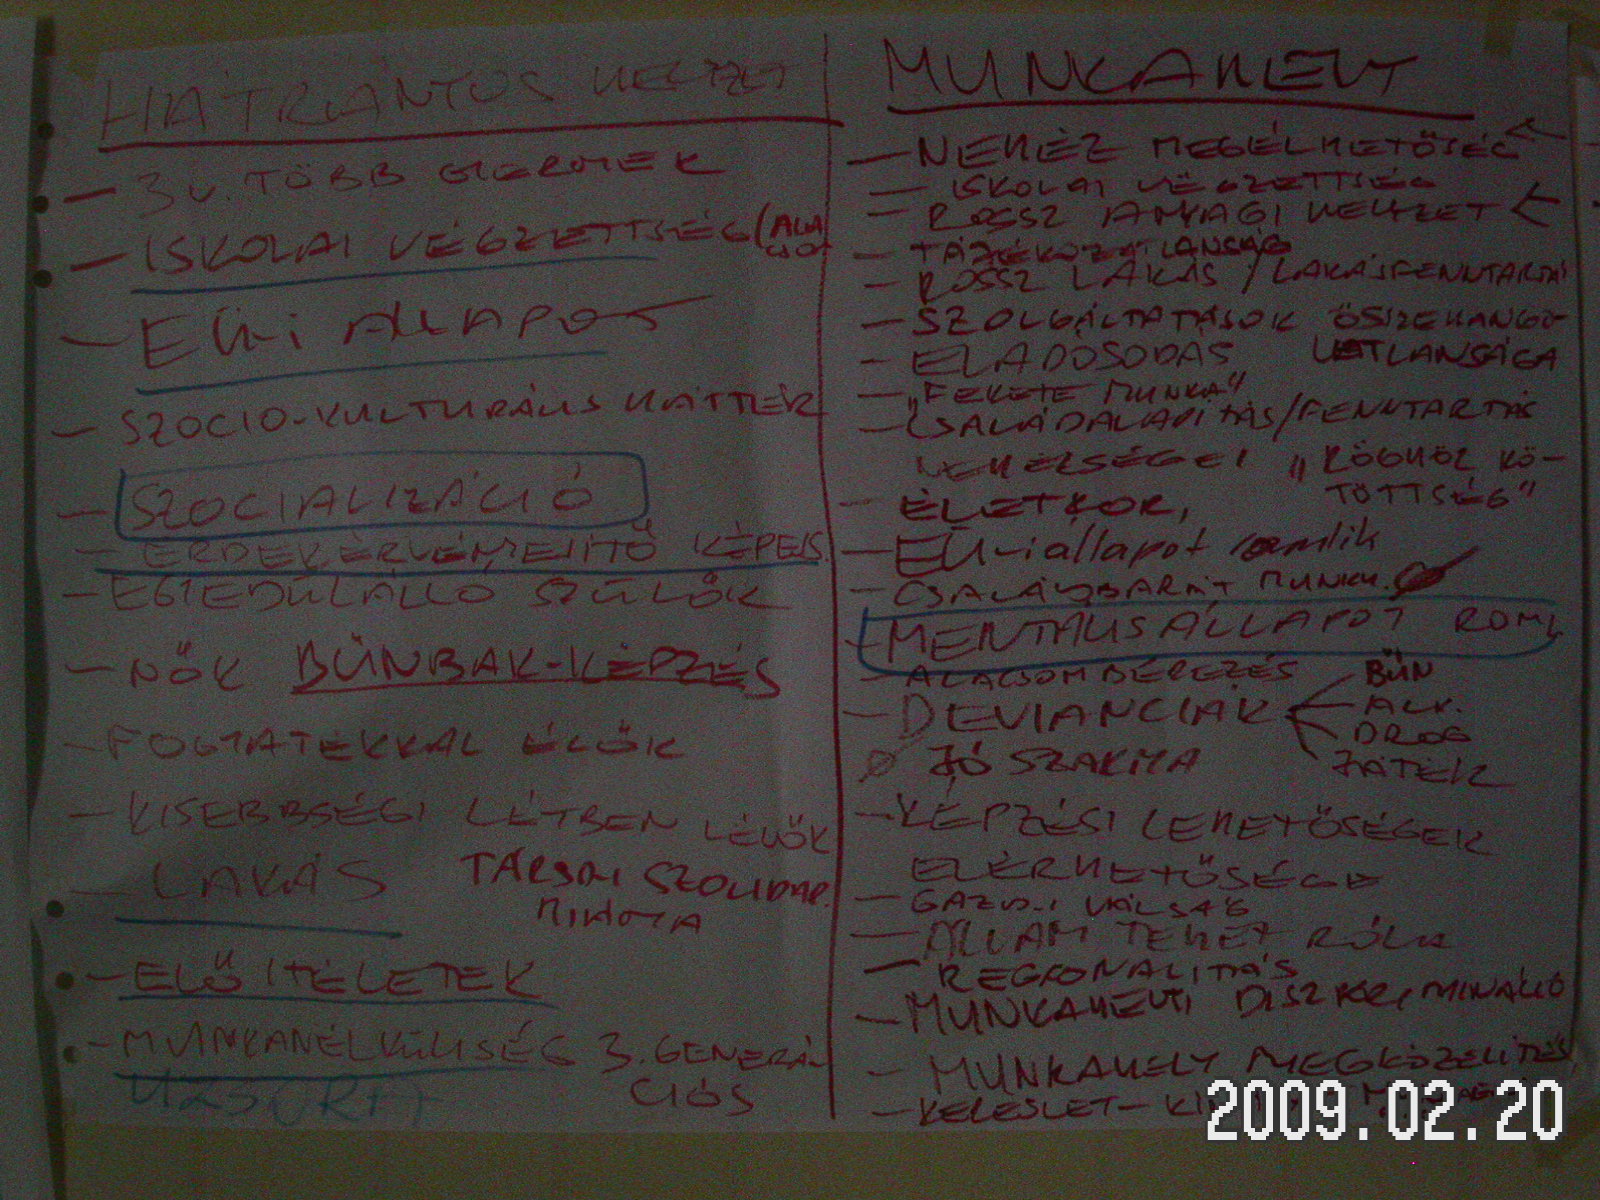 HÁTRÁNYOS HELYZET
- 3 v. TÖBB GYERMEK
- ISKOLAI VÉGZETTSÉG (ALACSO
- EÜ-i ÁLLAPOT
- SZOCIO-KULTURÁLIS HÁTTÉR
- SZOCIALIZÁCIÓ
- ÉRDEKÉRVÉNYESÍTŐ KÉPES.
- EGYEDÜLÁLLÓ SZÜLŐK
- NŐK BŰNBAK-KÉPZÉS
- FOGYATÉKKAL ÉLŐK
- KISEBBSÉGI LÉTBEN LÉVŐK
- LAKÁS TÁRSMI SZOLIDAR.
HIÁNYA
- ELŐÍTÉLETEK
- MUNKANÉLKÜLISÉG 3. GENERÁ-
CIÓS
MUNKAHELY
- NEHÉZ MEGÉLHETŐSÉG
- ISKOLAI VÉGZETTSÉG
- ROSSZ ANYAGI HELYZET
- TÁJÉKOZATLANSÁG
- ROSSZ LAKÁS / LAKÁSFENNTARTÁS
- SZOLGÁLTATÁSOK ÖSSZEHANGO-
LATLANSÁGA
- ELADÓSODÁS
- "FEKETE MUNKA"
- CSALÁDALAPÍTÁS/FENNTARTÁS
NEHÉZSÉGEI "RÖGHÖZ KÖ-
TÖTTSÉG"
- ÉLETKOR,
- EÜ-i állapot romlik
- CSALÁDBARÁT MUNKH.
- MENTÁLIS ÁLLAPOT ROML
- ALACSONY BÉREZÉS
- DEVIANCIÁK < BŰN
ALK.
DROG
JÁTÉK
JÓ SZAKMA
- KÉPZÉSI LEHETŐSÉGEK
ELÉRHETŐSÉGE
- GAZD-I VÁLSÁG
- ÁLLAM TEHET RÓLA
- REGIONALITÁS
- MUNKAHELYI DISZKRIMINÁCIÓ
- MUNKAHELY MEGKÖZELÍTÉS
- KERESLET - KÍ
2009.02.20